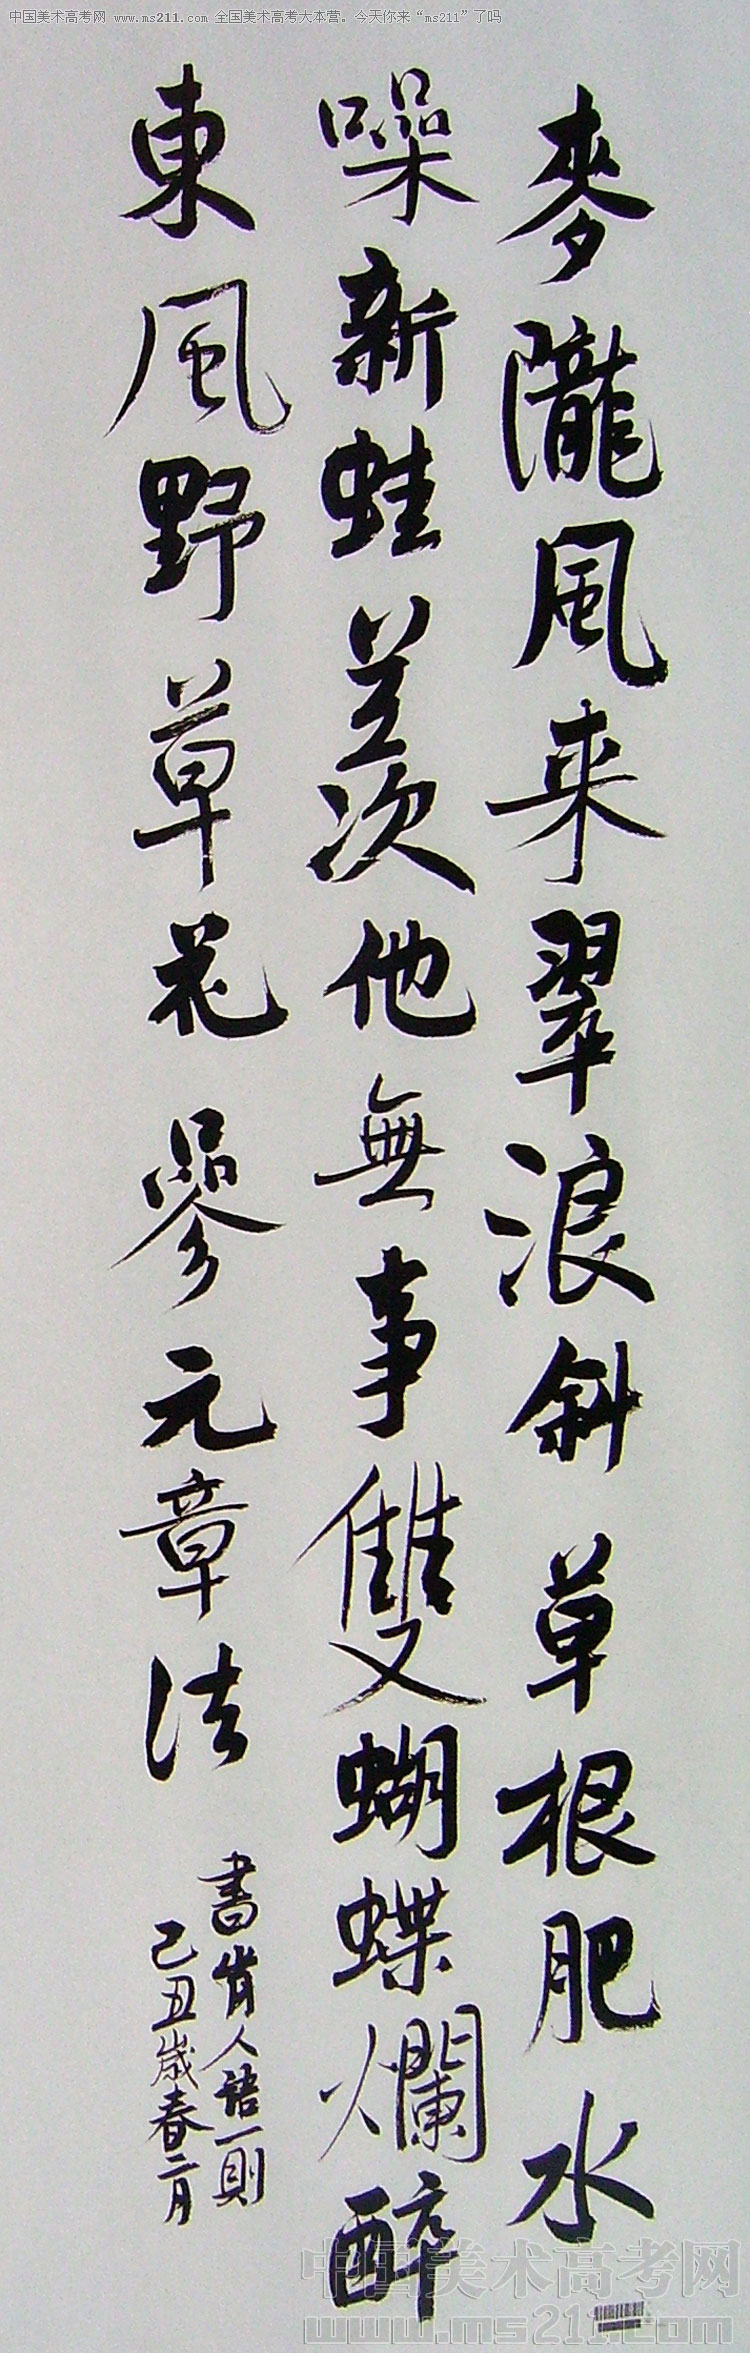 中国美术高考网 www.ms211.com 全国美术高考大本营。今天你来“ms211”了吗
麥隴風来翠浪斜草根肥水
噪新蛙羡他無事雙蝴蝶爛醉
東風野草花 參元章法
書昔人語一則
己丑歲春二月
中国美术高考网
www.ms211.com